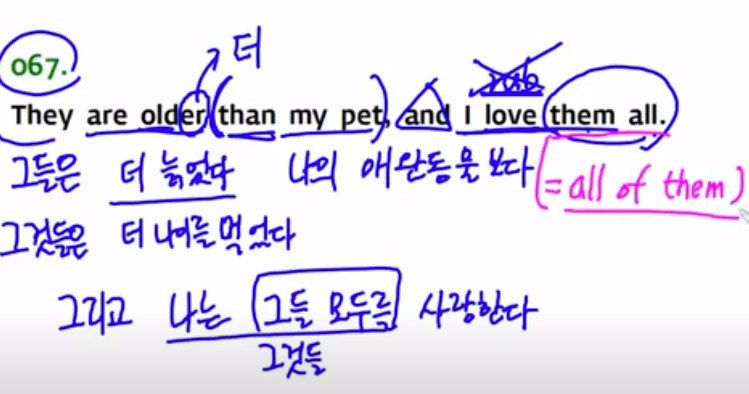 더
067.
They are older (than my pet), and I love them all.
그들은 더 늙었다 나의 애완동물보다 (= all of them)
그것들은 더 나이를 먹었다
그리고 나는 그들 모두를 사랑한다
그것들